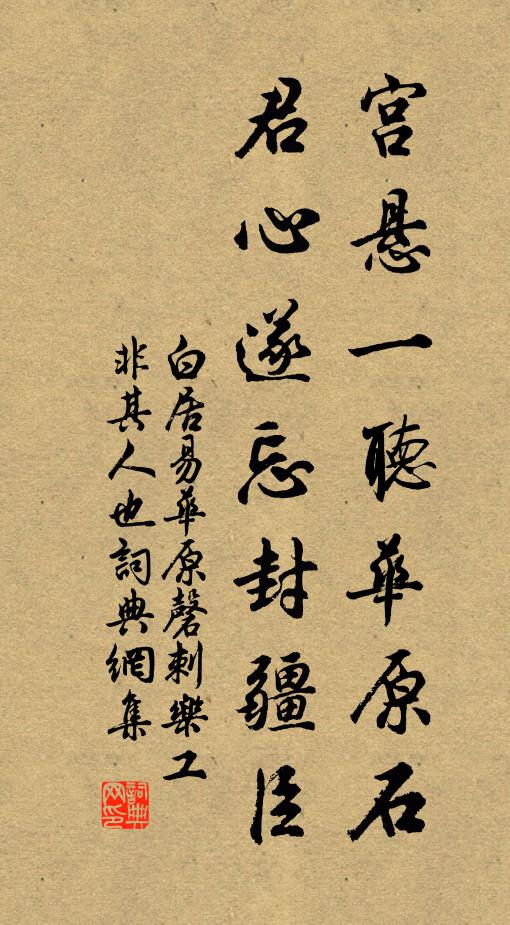 宫悬一聽華原石
君心遂忘封疆臣
白居易華原磬刺樂工
非其人也詞典網集
詞典
网印